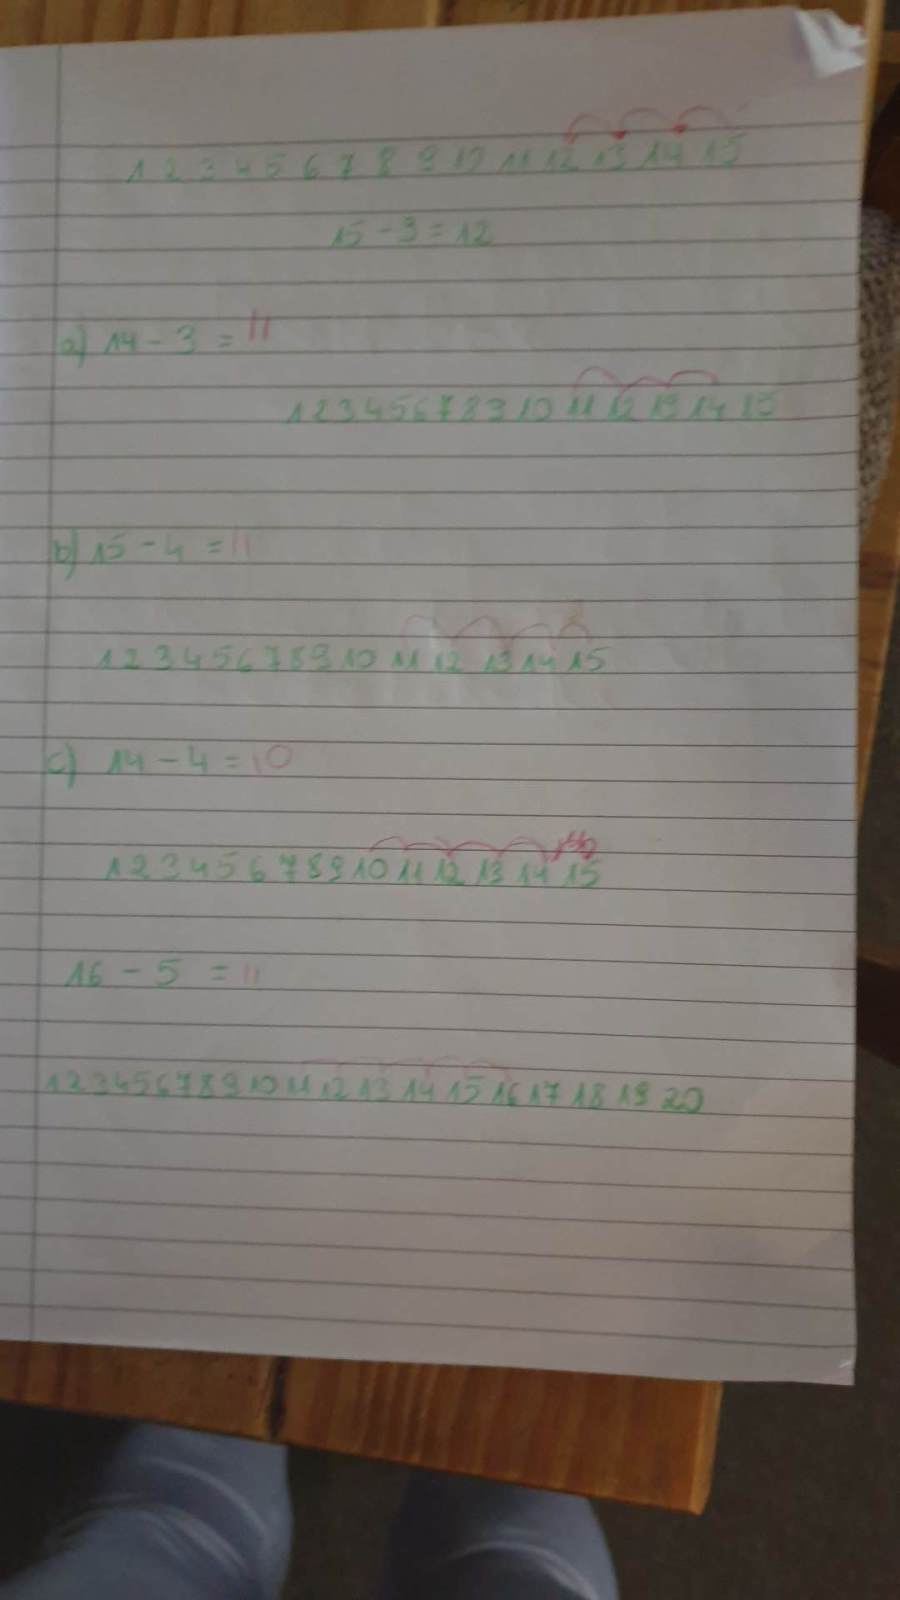 1 2 3 4 5 6 7 8 9 10 11 12 13 14 15
15 - 3 = 12
a) 14 - 3 = 11
1 2 3 4 5 6 7 8 9 10 11 12 13 14 15
b) 15 - 4 = 11
1 2 3 4 5 6 7 8 9 10 11 12 13 14 15
c) 14 - 4 = 10
1 2 3 4 5 6 7 8 9 10 11 12 13 14 15
16 - 5 = 11
1 2 3 4 5 6 7 8 9 10 11 12 13 14 15 16 17 18 19 20